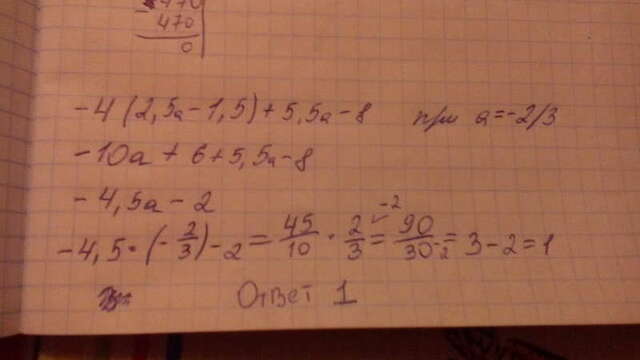 470
470
0
-4(2,5a-1,5)+5,5a-8 при a=-2/3
-10a+6+5,5a-8
-4,5a-2
-4,5·(-2/3)-2=45/10·2/3-2=90/30-2=3-2=1
Ответ 1